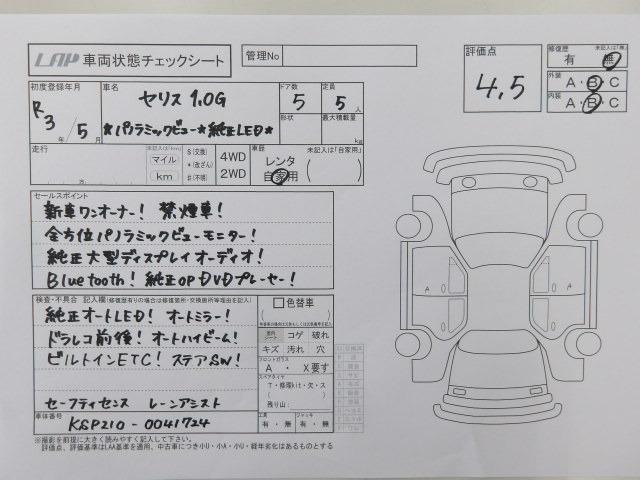 LAP 車両状態チェックシート
管理No
評価点
4.5
修復歴 未記入は「無」
有 無
外装 A・B・C
内装 A・B・C
初度登録年月
R3年/5月
車名
セリス 1.0G
★パノラミックビュー★純正LED★
ドア数 定員
5 5人
形状 最大積載量
kg
走行
マイル
km
$(交換)
*(改ざん)
#(不明)
4WD
2WD
車歴 未記入は「自家用」
レンタ
自家用 ( )
セールスポイント
新車ワンオーナー! 禁煙車!
全方位パノラミックビューモニター!
純正大型ディスプレイオーディオ!
Bluetooth! 純正OP DVDプレーヤー!
検査・不具合 記入欄(修復歴有りの場合は修復箇所・交換箇所等理由を記入)
純正オートLED! オートミラー!
ドラレコ前後! オートハイビーム!
ビルトインETC! ステアSW!
セーフティセンス レーンアシスト
色替車
( )
コゲ 破れ
キズ 汚れ 穴
フロントガラス
A ・ X要す
スペアタイヤ
T・修理kit・欠・ス
残り山: ( )
工具 ジャッキ
有・無 有・無
車体番号
KSP210-0041724
※撮影を前提に大きく読みやすく記入して下さい。
評価点、評価基準はLAA基準を適用、中古車につき小U・小A・小U・経年劣化はあるものとする
A A